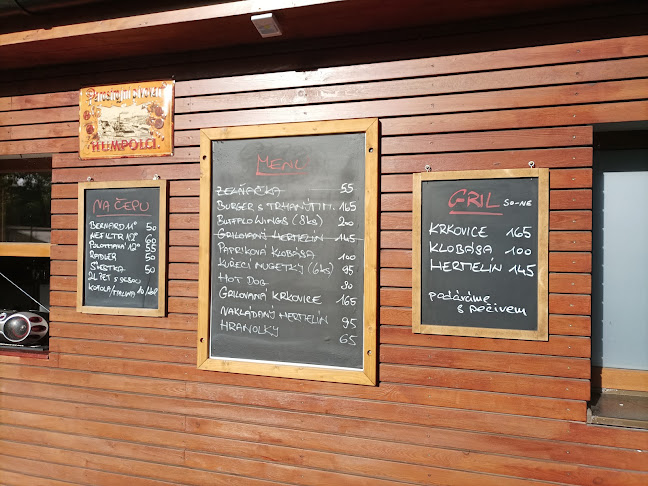 HUMPOLCI.
NA ČEPU
BERNARD 11° 50
NEFILTR 12° 60
POLOTMAVÁ 12° 55
RADLER 50
2L PET S SEBOU
KOFOLA/MALINA
MENU
ZELŇAČKA 55
BURGER S TRHANÝM M. 165
BUFFALO WINGS (8ks) 200
GRILOVANÝ HERMELÍN 145
PAPRIKOVÁ KLOBÁSA 100
KUŘECÍ NUGETKY (6ks) 95
HOT DOG 90
GRILOVANÁ KRKOVICE 165
NAKLÁDANÝ HERMELÍN 95
HRANOLKY 65
GRIL SO-NE
KRKOVICE 165
KLOBÁSA 100
HERMELÍN 145
podáváme
s pečivem